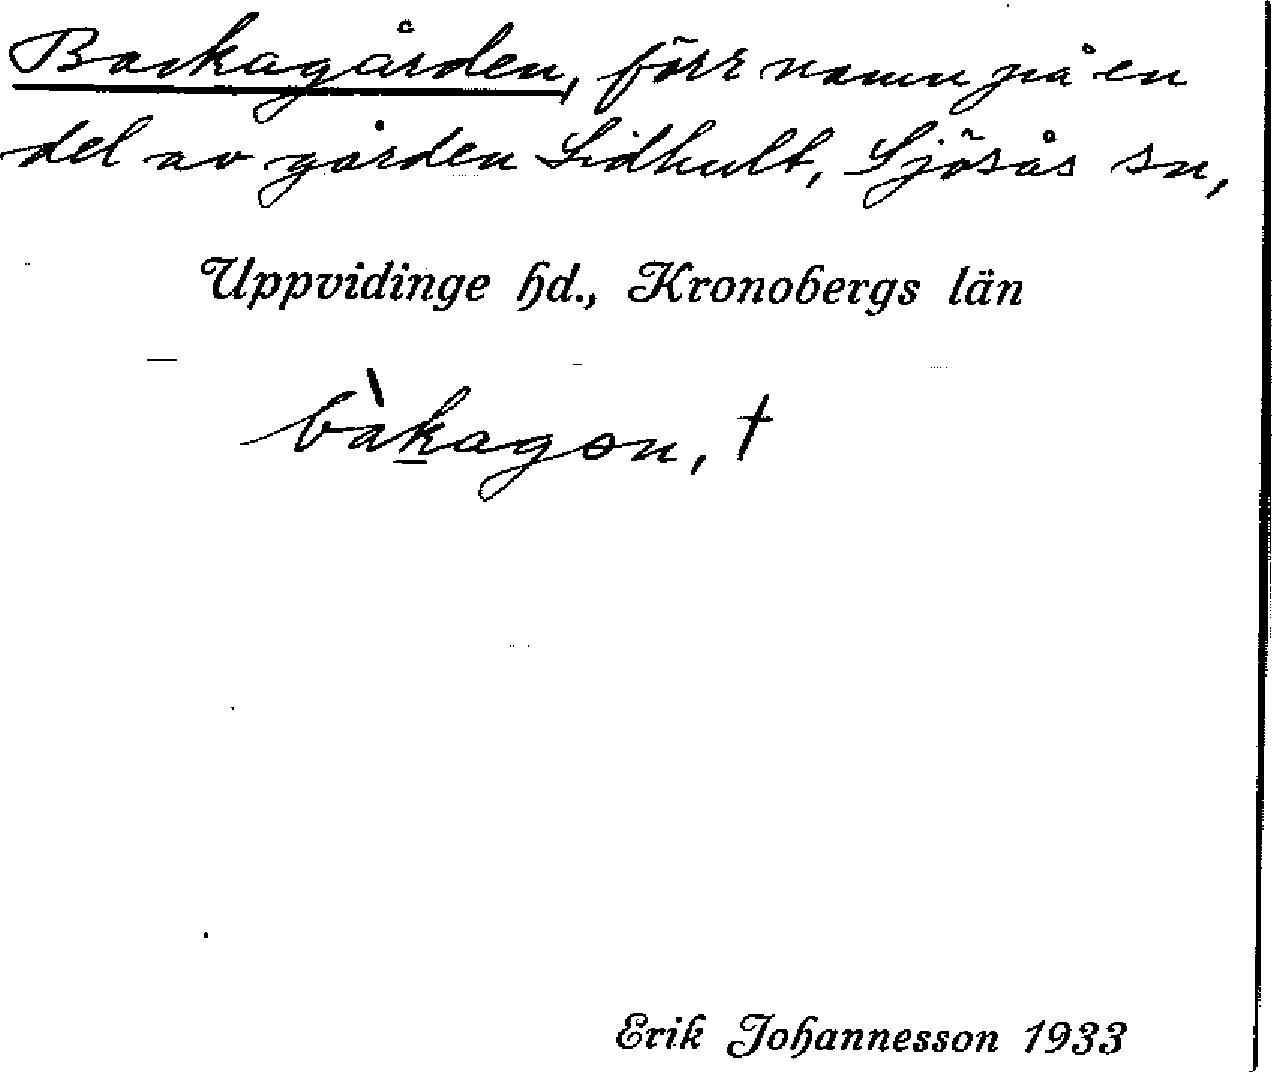 Backagården, förr namn på en
del av gården Lidhult, Sjösås sn,
Uppvidinge hd., Kronobergs län
bàkagon, †
Erik Johannesson 1933